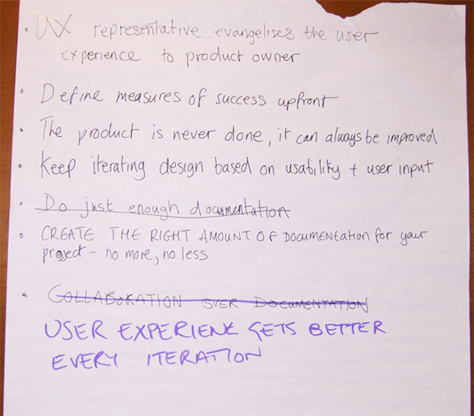 • UX representative evangelises the user
experience to product owner
• Define measures of success upfront
• The product is never done, it can always be improved
• Keep iterating design based on usability + user input
• Do just enough documentation
• CREATE THE RIGHT AMOUNT OF DOCUMENTATION for your
project - no more, no less
• COLLABORATION OVER DOCUMENTATION
USER EXPERIENC GETS BETTER
EVERY ITERATION